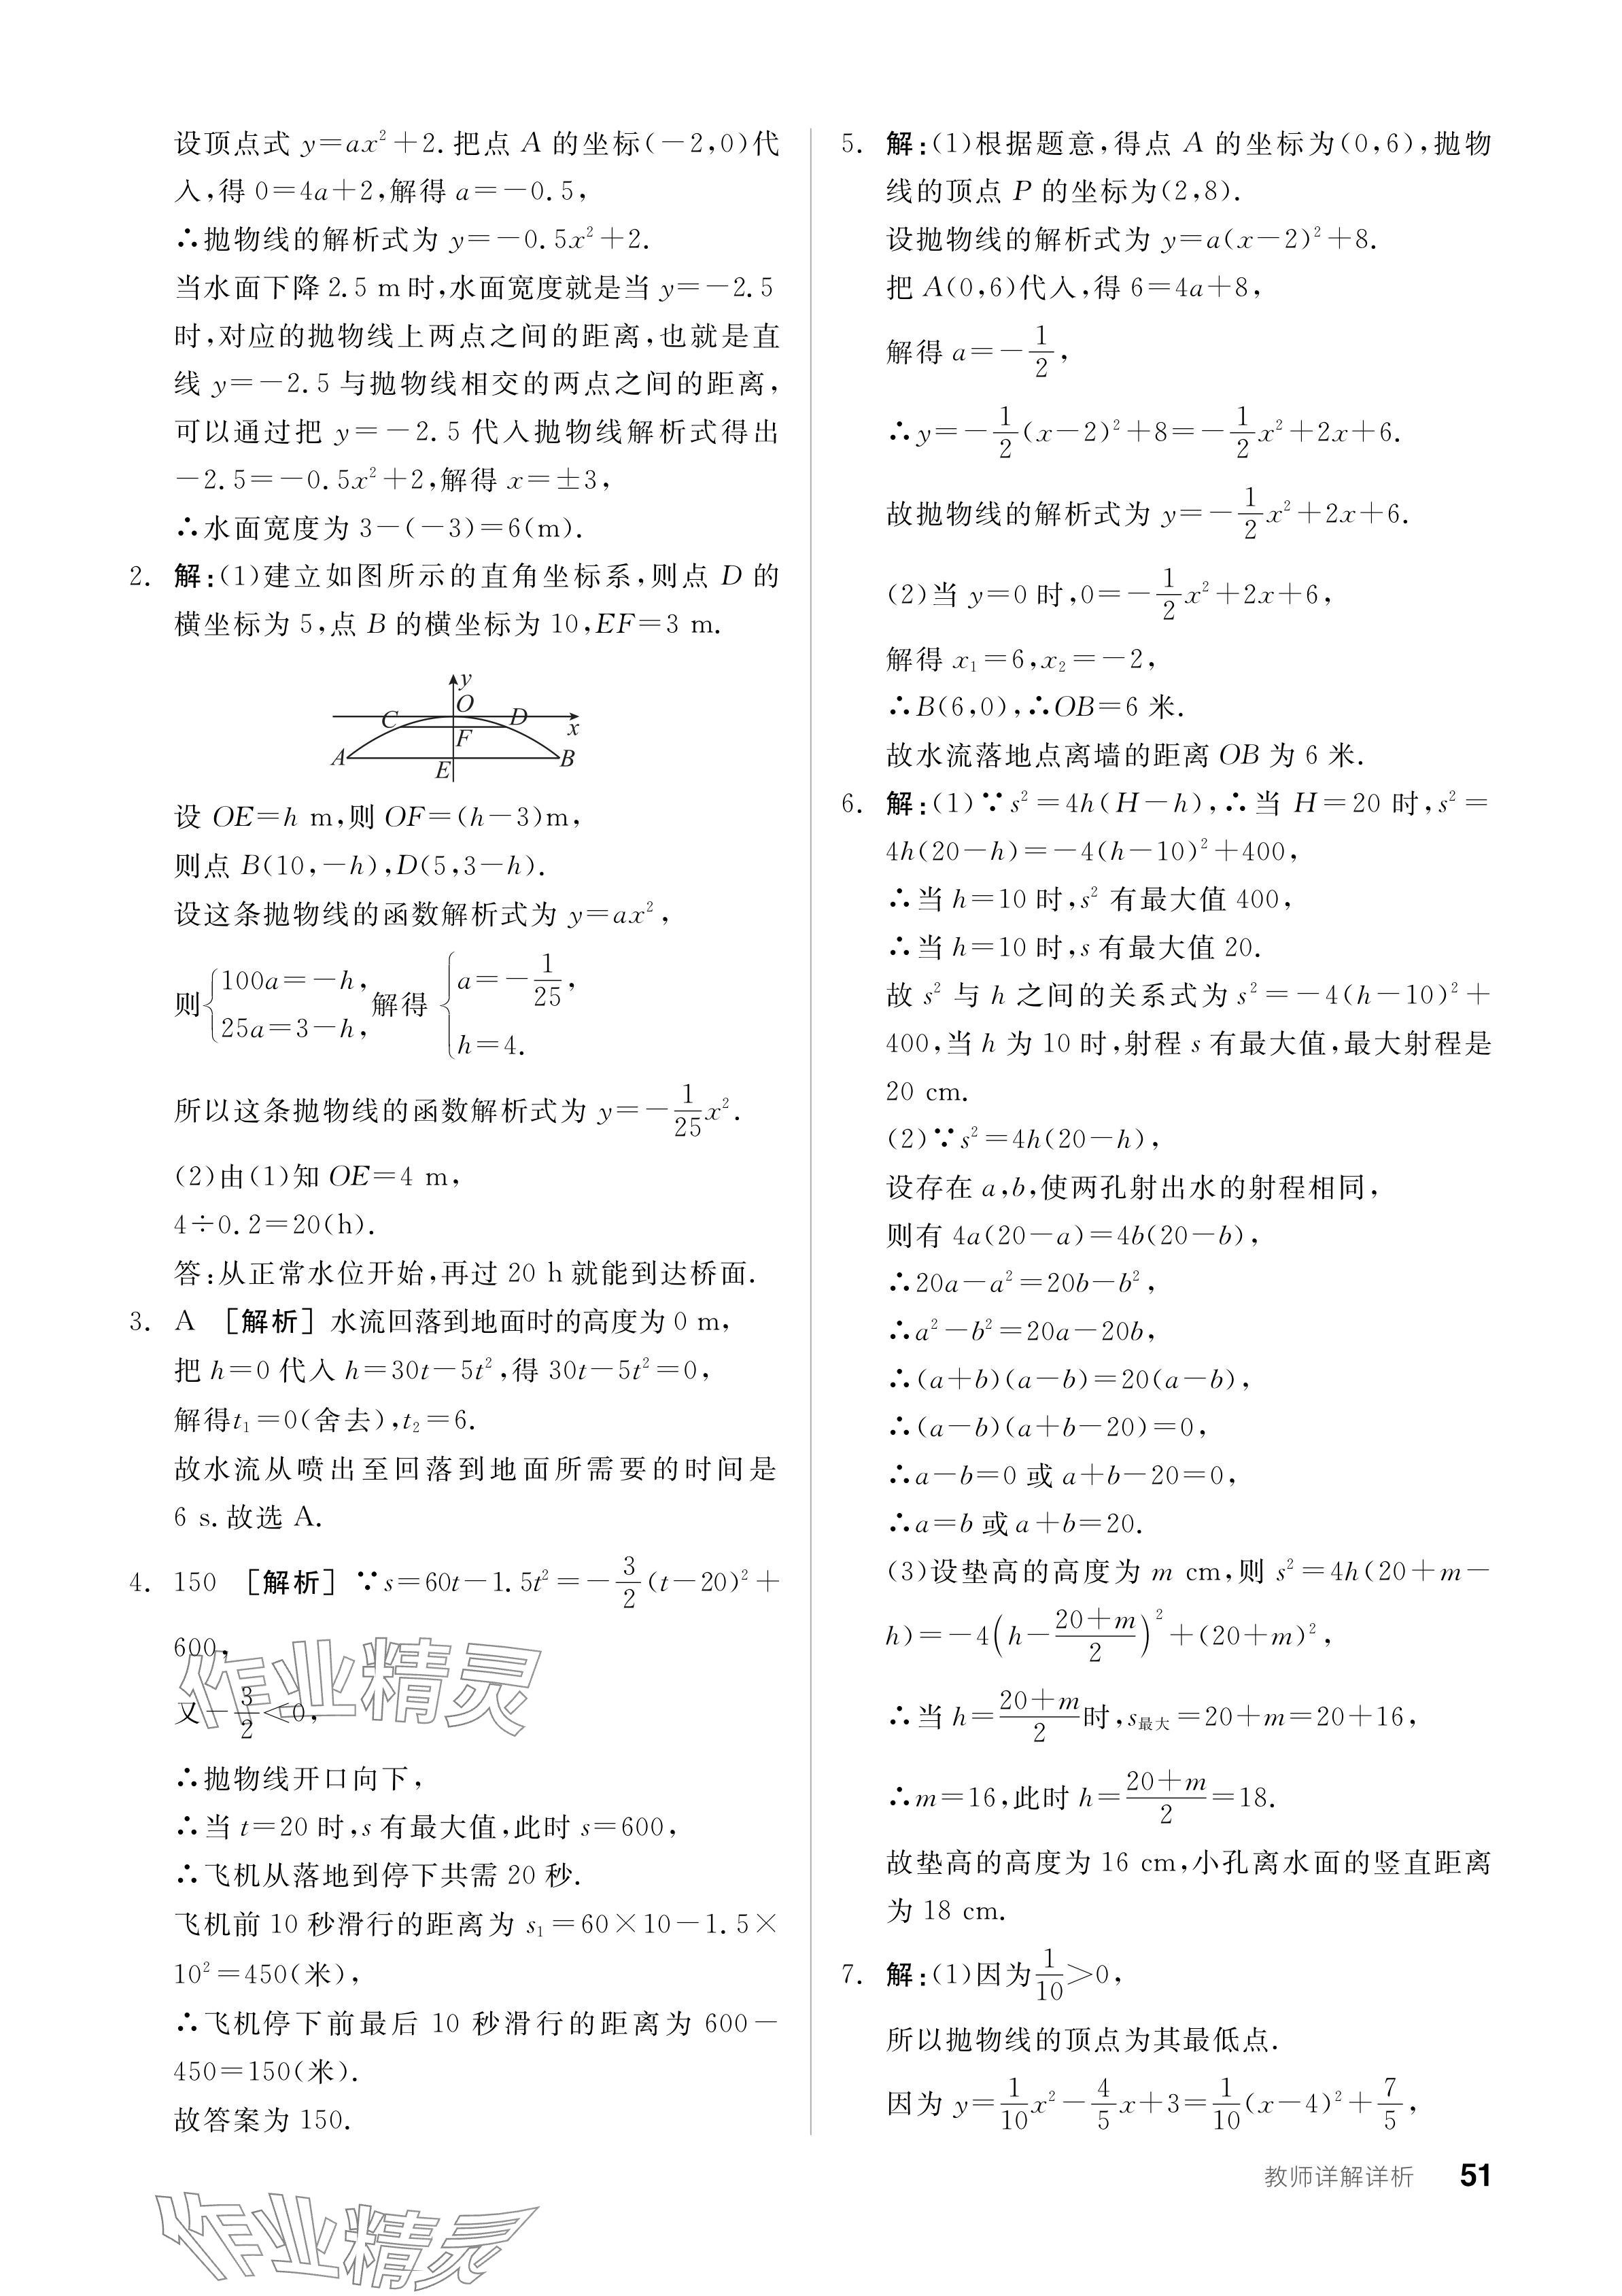 设顶点式 y=ax²+2.把点 A 的坐标(-2,0)代
入,得 0=4a+2,解得 a=-0.5,
∴抛物线的解析式为 y=-0.5x²+2.
当水面下降 2.5 m时,水面宽度就是当 y=-2.5
时,对应的抛物线上两点之间的距离,也就是直
线 y=-2.5 与抛物线相交的两点之间的距离,
可以通过把 y=-2.5 代入抛物线解析式得出
-2.5=-0.5x²+2,解得 x=±3,
∴水面宽度为 3-(-3)=6(m).
2. 解:(1)建立如图所示的直角坐标系,则点 D 的
横坐标为 5,点 B 的横坐标为 10,EF=3 m.
y
O
C D
x
F
A B
E
设 OE=h m,则 OF=(h-3)m,
则点 B(10,-h),D(5,3-h).
设这条抛物线的函数解析式为 y=ax²,
则{100a=-h, 25a=3-h, 解得 {a=-1/25, h=4.
所以这条抛物线的函数解析式为 y=-1/25x².
(2)由(1)知 OE=4 m,
4÷0.2=20(h).
答:从正常水位开始,再过 20 h 就能到达桥面.
3. A [解析] 水流回落到地面时的高度为 0 m,
把 h=0 代入 h=30t-5t²,得 30t-5t²=0,
解得t₁=0(舍去),t₂=6.
故水流从喷出至回落到地面所需要的时间是
6 s.故选 A.
4. 150 [解析] ∵s=60t-1.5t²=-3/2(t-20)²+
600,
又-3/2<0,
∴抛物线开口向下,
∴当 t=20 时,s 有最大值,此时 s=600,
∴飞机从落地到停下共需 20 秒.
飞机前 10 秒滑行的距离为 s₁=60×10-1.5×
10²=450(米),
∴飞机停下前最后 10 秒滑行的距离为 600-
450=150(米).
故答案为 150.
5. 解:(1)根据题意,得点 A 的坐标为(0,6),抛物
线的顶点 P 的坐标为(2,8).
设抛物线的解析式为 y=a(x-2)²+8.
把 A(0,6)代入,得 6=4a+8,
解得 a=-1/2,
∴y=-1/2(x-2)²+8=-1/2x²+2x+6.
故抛物线的解析式为 y=-1/2x²+2x+6.
(2)当 y=0 时,0=-1/2x²+2x+6,
解得 x₁=6,x₂=-2,
∴B(6,0),∴OB=6 米.
故水流落地点离墙的距离 OB 为 6 米.
6. 解:(1)∵s²=4h(H-h),∴当 H=20 时,s²=
4h(20-h)=-4(h-10)²+400,
∴当 h=10 时,s² 有最大值 400,
∴当 h=10 时,s 有最大值 20.
故 s² 与 h 之间的关系式为 s²=-4(h-10)²+
400,当 h 为 10 时,射程 s 有最大值,最大射程是
20 cm.
(2)∵s²=4h(20-h),
设存在 a,b,使两孔射出水的射程相同,
则有 4a(20-a)=4b(20-b),
∴20a-a²=20b-b²,
∴a²-b²=20a-20b,
∴(a+b)(a-b)=20(a-b),
∴(a-b)(a+b-20)=0,
∴a-b=0 或 a+b-20=0,
∴a=b 或 a+b=20.
(3)设垫高的高度为 m cm,则 s²=4h(20+m-
h)=-4(h-(20+m)/2)²+(20+m)²,
∴当 h=(20+m)/2时,s最大=20+m=20+16,
∴m=16,此时 h=(20+m)/2=18.
故垫高的高度为 16 cm,小孔离水面的竖直距离
为 18 cm.
7. 解:(1)因为1/10>0,
所以抛物线的顶点为其最低点.
因为 y=1/10x²-4/5x+3=1/10(x-4)²+7/5,
教师详解详析 51
作业精灵
作业精灵